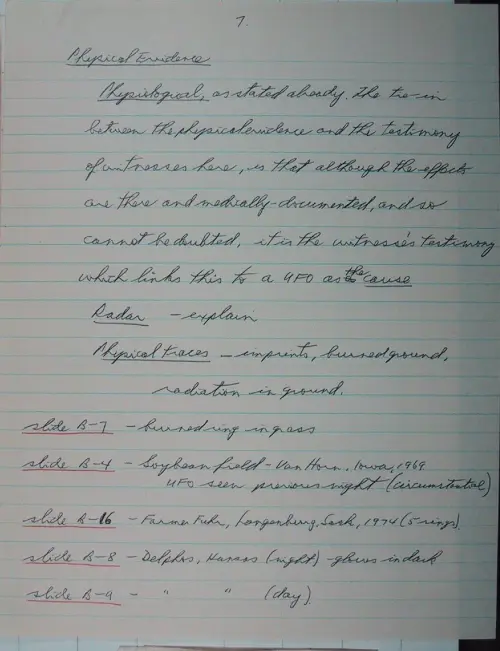 7.
Physical Evidence
Physiological, as stated already. The tie-in
between the physical evidence and the testimony
of witnesses here, is that although the effects
are there and medically-documented, and so
cannot be doubted, it is the witness's testimony
which links this to a UFO as the cause
Radar - explain
Physical traces - imprints, burned ground,
radiation in ground.
slide B-7 - burned ring in grass
slide B-4 - Soybean field - Van Horn, Iowa, 1969
UFO seen previous night (circumstantial)
slide B-16 - Farmer Fuhr, Langenburg, Sask, 1974 (5 rings)
slide B-8 - Delphos, Kansas (night) - glows in dark
slide B-9 - " " (day)